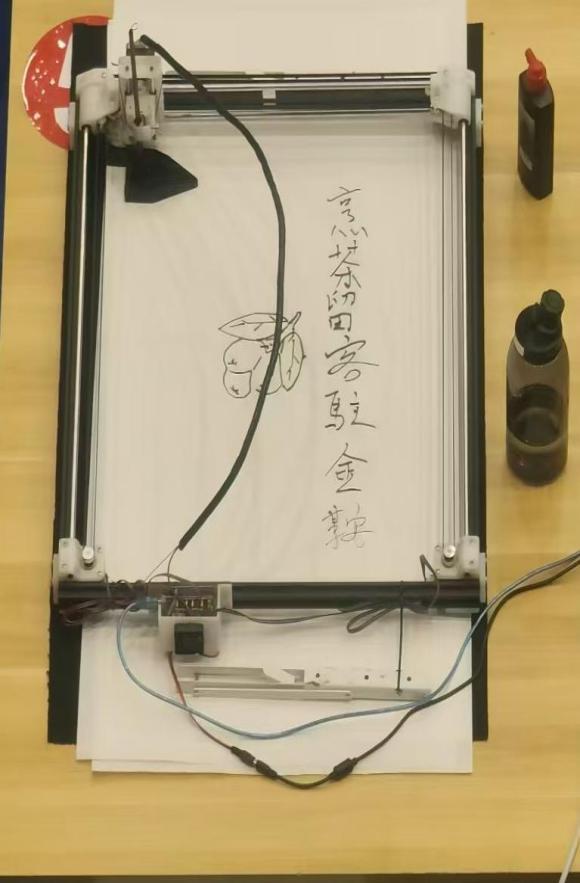 烹茶留客駐金鞍